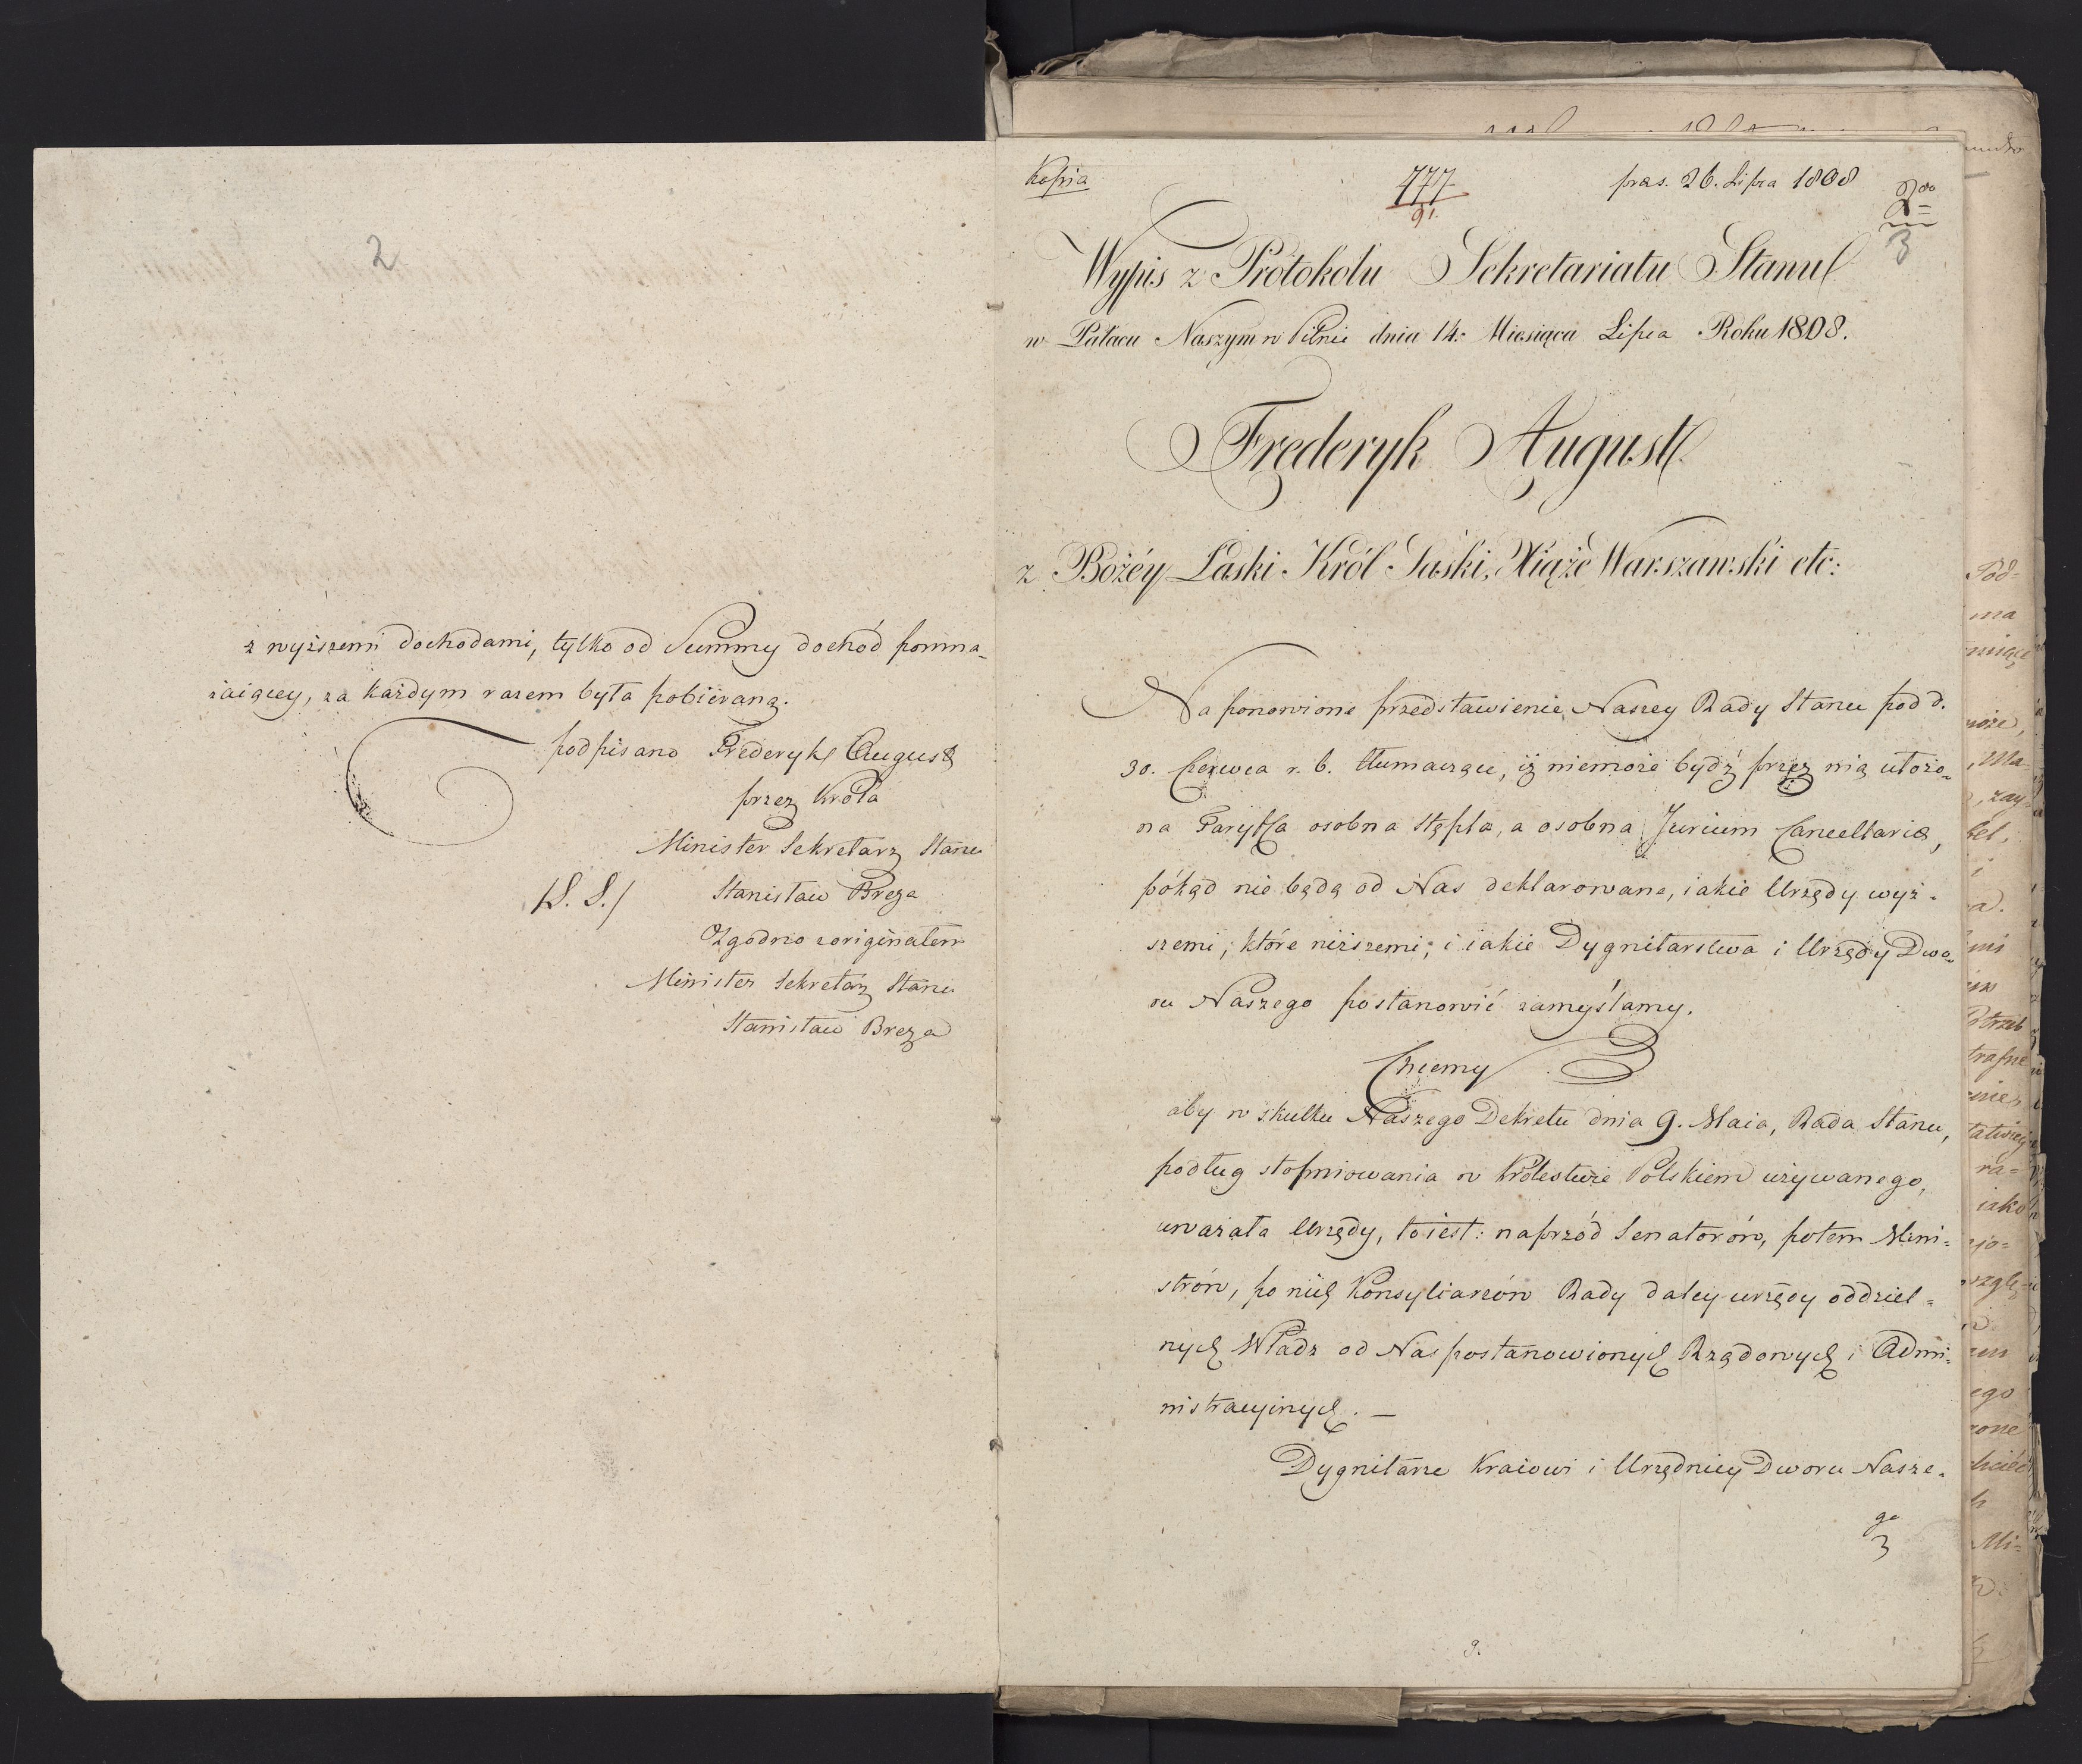 2
z wyższemi dochodami, tylko od Summy dochód pomna-
żaiącey, za każdym razem była pobiéraną.
podpisano Frederyk August
przez Króla
Minister Sekretarz Stanu
/L. S./ Stanisław Breza
Zgodno z originałem
Minister Sekretarz Stanu
Stanisław Breza
Kopia
777
91.
praes. 26. Lipca 1808
2do
3
Wypis z Protokołu Sekretariatu Stanu
w Pałacu Naszym w Pilnic dnia 14. Miesiąca Lipca Roku 1808.
Fryderyk August
z Bożéy Łaski Król Saski, Xiąże Warszawski etc:
Na ponowione przedstawienie Naszey Rady Stanu pod d.
30. Czerwca r. b. tłumacząc, iż niemoże bydź przez nią ułożo-
na Taryffa osobna stępla, a osobna Jurium Cancellariæ,
pókąd nie będą od Nas deklarowane, iakie Urzędy wyż-
szemi, które niższemi; i iakie Dygnitarstwa i Urzędy Dwo-
ru Naszego postanowić zamyślamy.
Chcemy
aby w skutku Naszego Dekretu dnia 9. Maia, Rada Stanu,
podług stopniowania w Królestwie Polskiem używanego,
uważała Urzędy, toiest: naprzód Senatorów, potem Mini-
strów, po nich Konsyliarzów Rady daley urzędy oddziel-
nych Władz od Nas postanowionych Rządowych i Admi-
nistracyinych. —
Dygnitarze Kraiowi i Urzędnicy Dworu Nasze-
go
3
9.